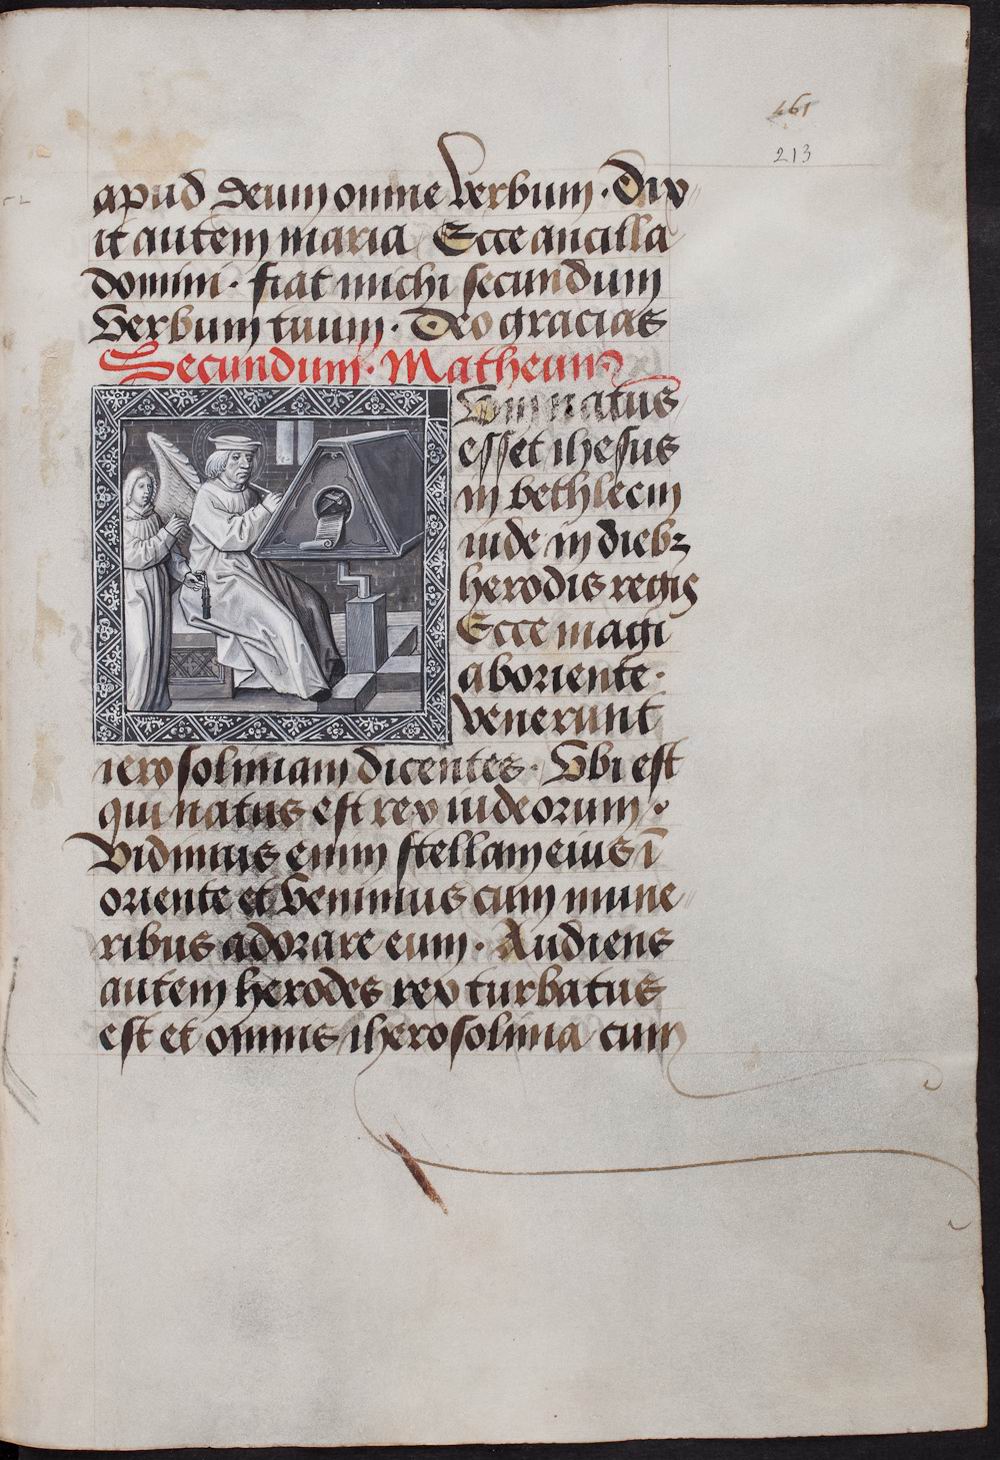 461
213
apud deum omne verbum · Dix
it autem maria Ecce ancilla
domini · fiat michi secundum
verbum tuum · Deo gracias
Secundum · Matheum
Cum natus
esset ihesus
in bethleem
iude in diebz
herodis regis
Ecce magi
ab oriente ·
venerunt
iero solimam dicentes · Vbi est
qui natus est rex iudeorum ·
Vidimus enim stellam eius ī
oriente et venimus cum mune
ribus adorare eum · Audiens
autem herodes rex turbatus
est et omnis iherosolima cum